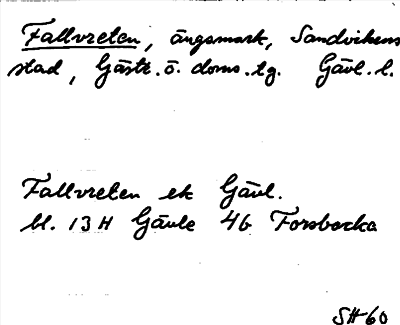 Fallvreten, ängsmark, Sandvikens
stad, Gästr. ö. doms. tg. Gävl. l.
Fallvreten ek Gävl.
bl. 13 H Gävle 4b Forsbacka
SH 60